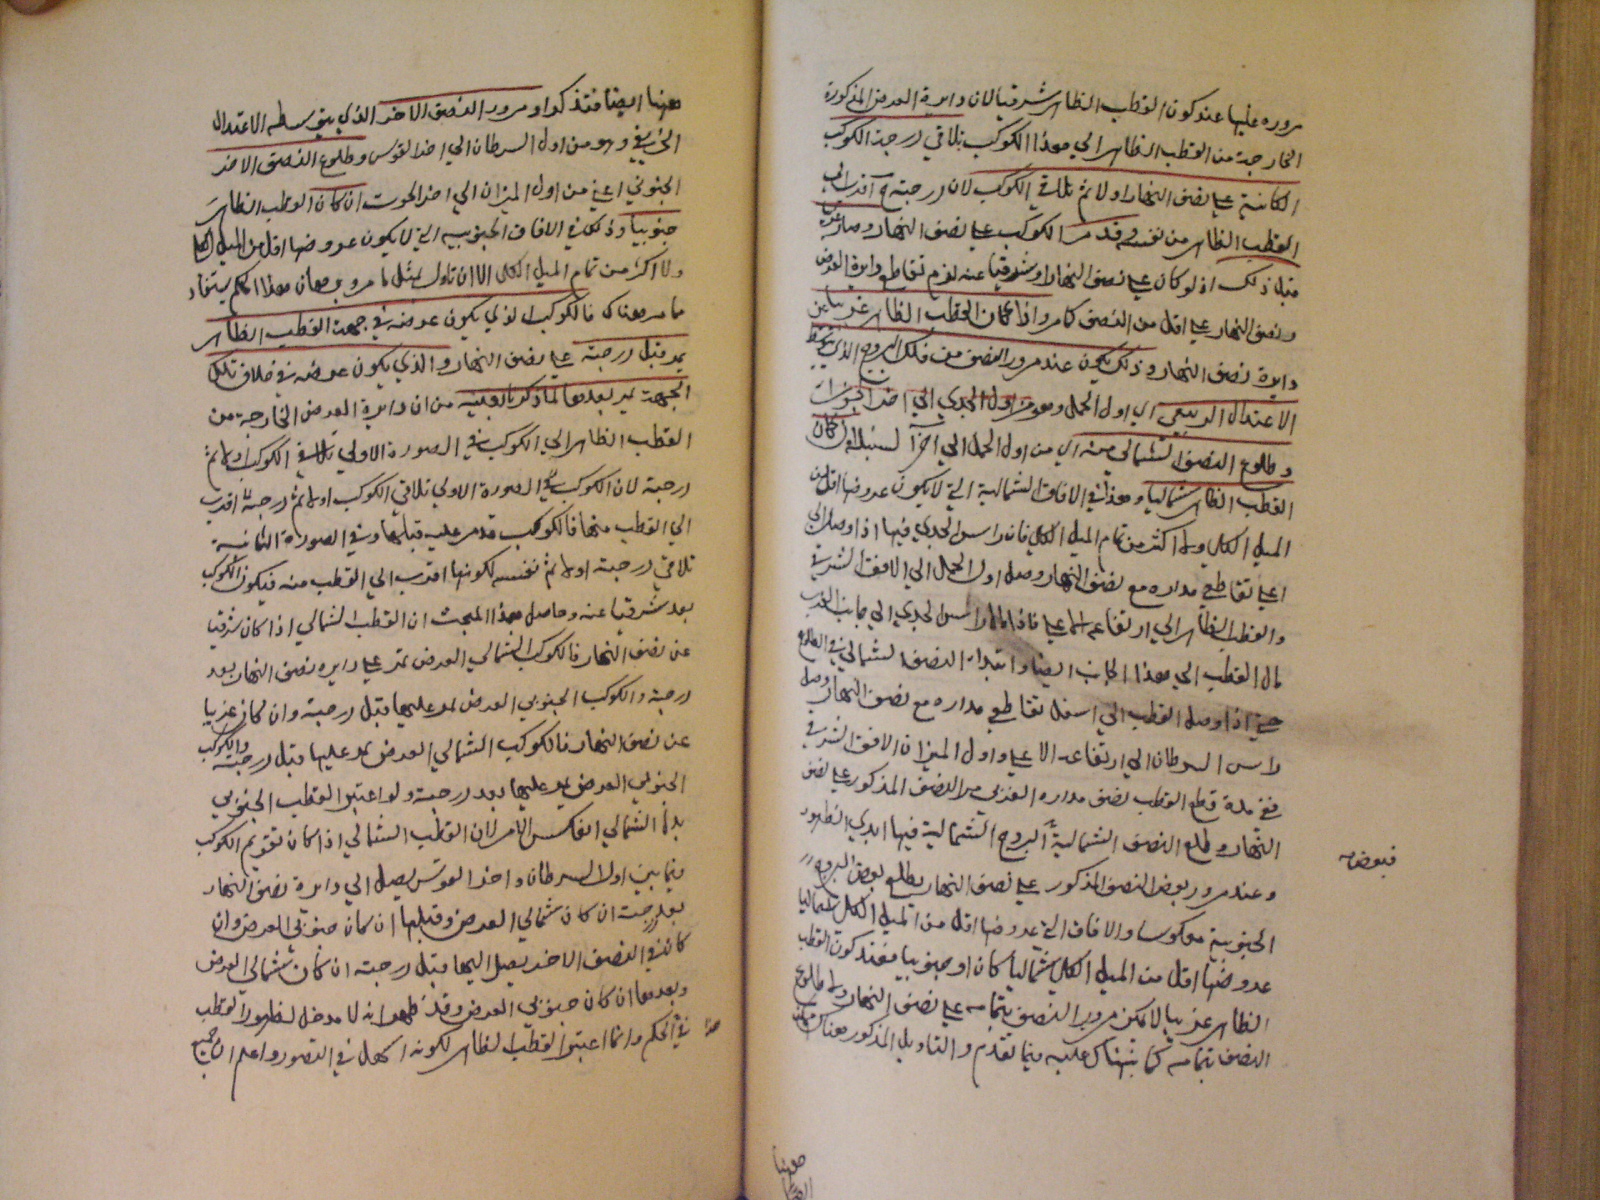 مروره عليها عند كون القطب الظاهر شرقيا لان دايرة العرض المذكورة
الخارجة من القطب الظاهر الي هذا الكوكب يلاقي درجة الكوكب
الكائنة علي نصف النهار اولا ثم تلاقي الكوكب لان درجته ح اقرب الي
القطب الظاهر من نفسه فقد مر الكوكب علي نصف النهار وصار غربيا
قبل ذلك اذ لو كان علي نصف النهار او شرقيا عنه لزم تقاطع دايرة العرض
ونصف النهار علي اقل من النصف كما مر واذا كان القطب الظاهر غربيا عن
دايرة نصف النهار وذلك يكون عند مرور النصف من فلك البروج الذي يتوسطه
الاعتدال الربيعي اي اول الحمل وهو من اول الجدي الي اخر الجوزاء
وطلوع النصف الشمالي منه اي من اول الحمل الي اخر السنبلة ان كان
القطب الظاهر شماليا وهذا في الافاق الشمالية التي لا يكون عروضها اقل من
الميل الكلي ولا اكثر من تمام الميل الكلي فان راس الجدي فيها اذا وصل الي
اعلي تقاطع مداره مع نصف النهار وصل اول الحمل الي الافق الشرقي
والقطب الظاهر الي ارتفاعه الاعلي فاذا مال راس الجدي الي جانب الغرب
مال القطب الي هذا الجانب ايضا وابتدات النصف الشمالي في الطلوع
حتي اذا وصل القطب الي اسفل تقاطع مداره مع نصف النهار وصل
راس السرطان الي ارتفاعه الاعلي واول الميزان الافق الشرقي
ففي مدة قطع القطب نصف مداره الغربي مر النصف المذكور علي نصف
النهار وطلع النصف الشمالية البروج الشمالية فيها ابدي الظهور
فبعضه
وعند مرور بعض النصف المذكور علي نصف النهار يطلع بعض البروج
الجنوبية معكوسا والافاق التي عروضها اقل من الميل الكلي شماليا
عروضها اقل من الميل الكلي شماليا كان او جنوبيا فعند كون القطب
الظاهر غربيا لا يمكن مرور النصف بتمامه علي نصف النهار ولا طلوع
النصف بتمامه كما نبهناك عليه فيما تقدم والتاويل المذكور هناك
ههنا
ههنا ايضا فتذكر او مرور النصف الاخر الذي يتوسطه الاعتدال
الخريفي وهو من اول السرطان الي اخر القوس وطلوع النصف الاخر
الجنوبي اعني من اول الميزان الي اخر الحوت ان كان القطب الظاهر
جنوبيا وذلك في الافاق الجنوبيه التي لا يكون عروضها اقل من الميل الكلي
ولا اكثر من تمام الميل الكلي الا ان تاول بمثل ما مر وبرهان هذا الحكم يستفاد
ما مر هناك فالكوكب الذي يكون عرضه في جهة القطب الظاهر
يمر قبل درجته علي نصف النهار والذي يكون عرضه في خلاف تلك
الجهة يمر بعدها لما ذكر بعينه من ان دايرة العرض الخارجة من
القطب الظاهر الي الكوكب في الصورة الاولي تلاقي الكوكب اولا ثم
درجته لان الكوكب في الصورة الاولي تلاقي الكوكب اولا ثم درجته اقرب
الي القطب منها فالكوكب قد مر عليه قبلها وفي الصورة الثانية
تلاقي درجته اولا ثم نفسه لكونها اقرب الي القطب منه فيكون الكوكب
بعد شرقيا عنه وحاصل هذا المبحث ان القطب الشمالي اذا كان شرقيا
عن نصف النهار فالكوكب الشمالي العرض تمر علي دايره نصف النهار بعد
درجته والكوكب الجنوبي العرض يمر عليها قبل درجته وان كان غربيا
عن نصف النهار فالكوكب الشمالي العرض يمر عليها قبل درجته والكوكب
الجنوبي العرض يمر عليها بعد درجته ولو اعتبر القطب الجنوبي
بدل الشمالي انعكس الامر لان القطب الشمالي اذا كان تقويم الكوكب
فيما بين اول السرطان واخر القوس يصل الي دايرة نصف النهار
بعد درجته ان كان شمالي العرض وقبلها ان كان جنوبي العرض وان
كان في النصف الاخر يصل اليها قبل درجته ان كان شمالي العرض
وبعدها ان كان جنوبي العرض وقد ظهر انه لا مدخل لظهور القطب
في الحكم وانما اعتبر القطب الظاهر لكونه اسهل في التصور واعلم ان جميع